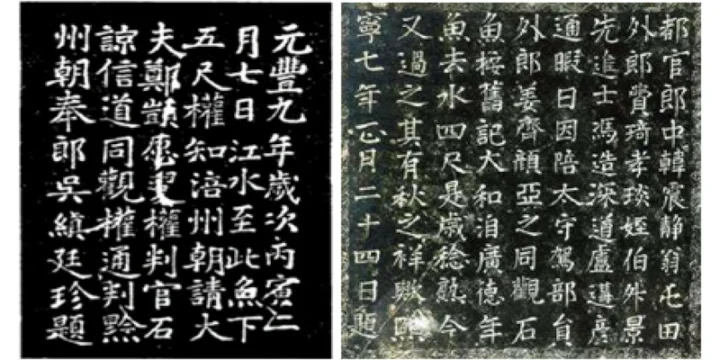 元豐九年歲次丙寅二
月七日江水至此魚下
五尺權知涪州朝請大
夫鄭顗愿叟權判官石
諒信道同觀權通判黔
州朝奉郎吳縝廷珍題
都官郎中韓震靜翁屯田
外郎費琦孝琰姪伯升景
先進士馮造深道盧遘彥
通暇日因陪太守駕部員
外郎姜齊顏亞之同觀石
魚桉舊記大和洎廣德年
魚去水四尺是歲稔熟今
又過之其有秋之祥歟熙
寧七年正月二十四日題